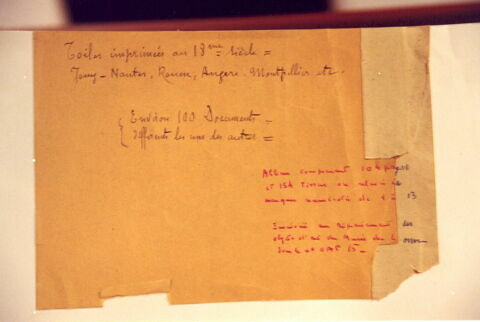 Toiles imprimées au 18ème siècle =
Jouy - Nantes, Rouen, Angers, Montpellier etc.
Environ 100 Documents =
différents les uns des autres =
Album comprenant 104 pages
et 154 tissus ou
manque numéroté de 1 à 53
au Département des
objets d'art du Musée du